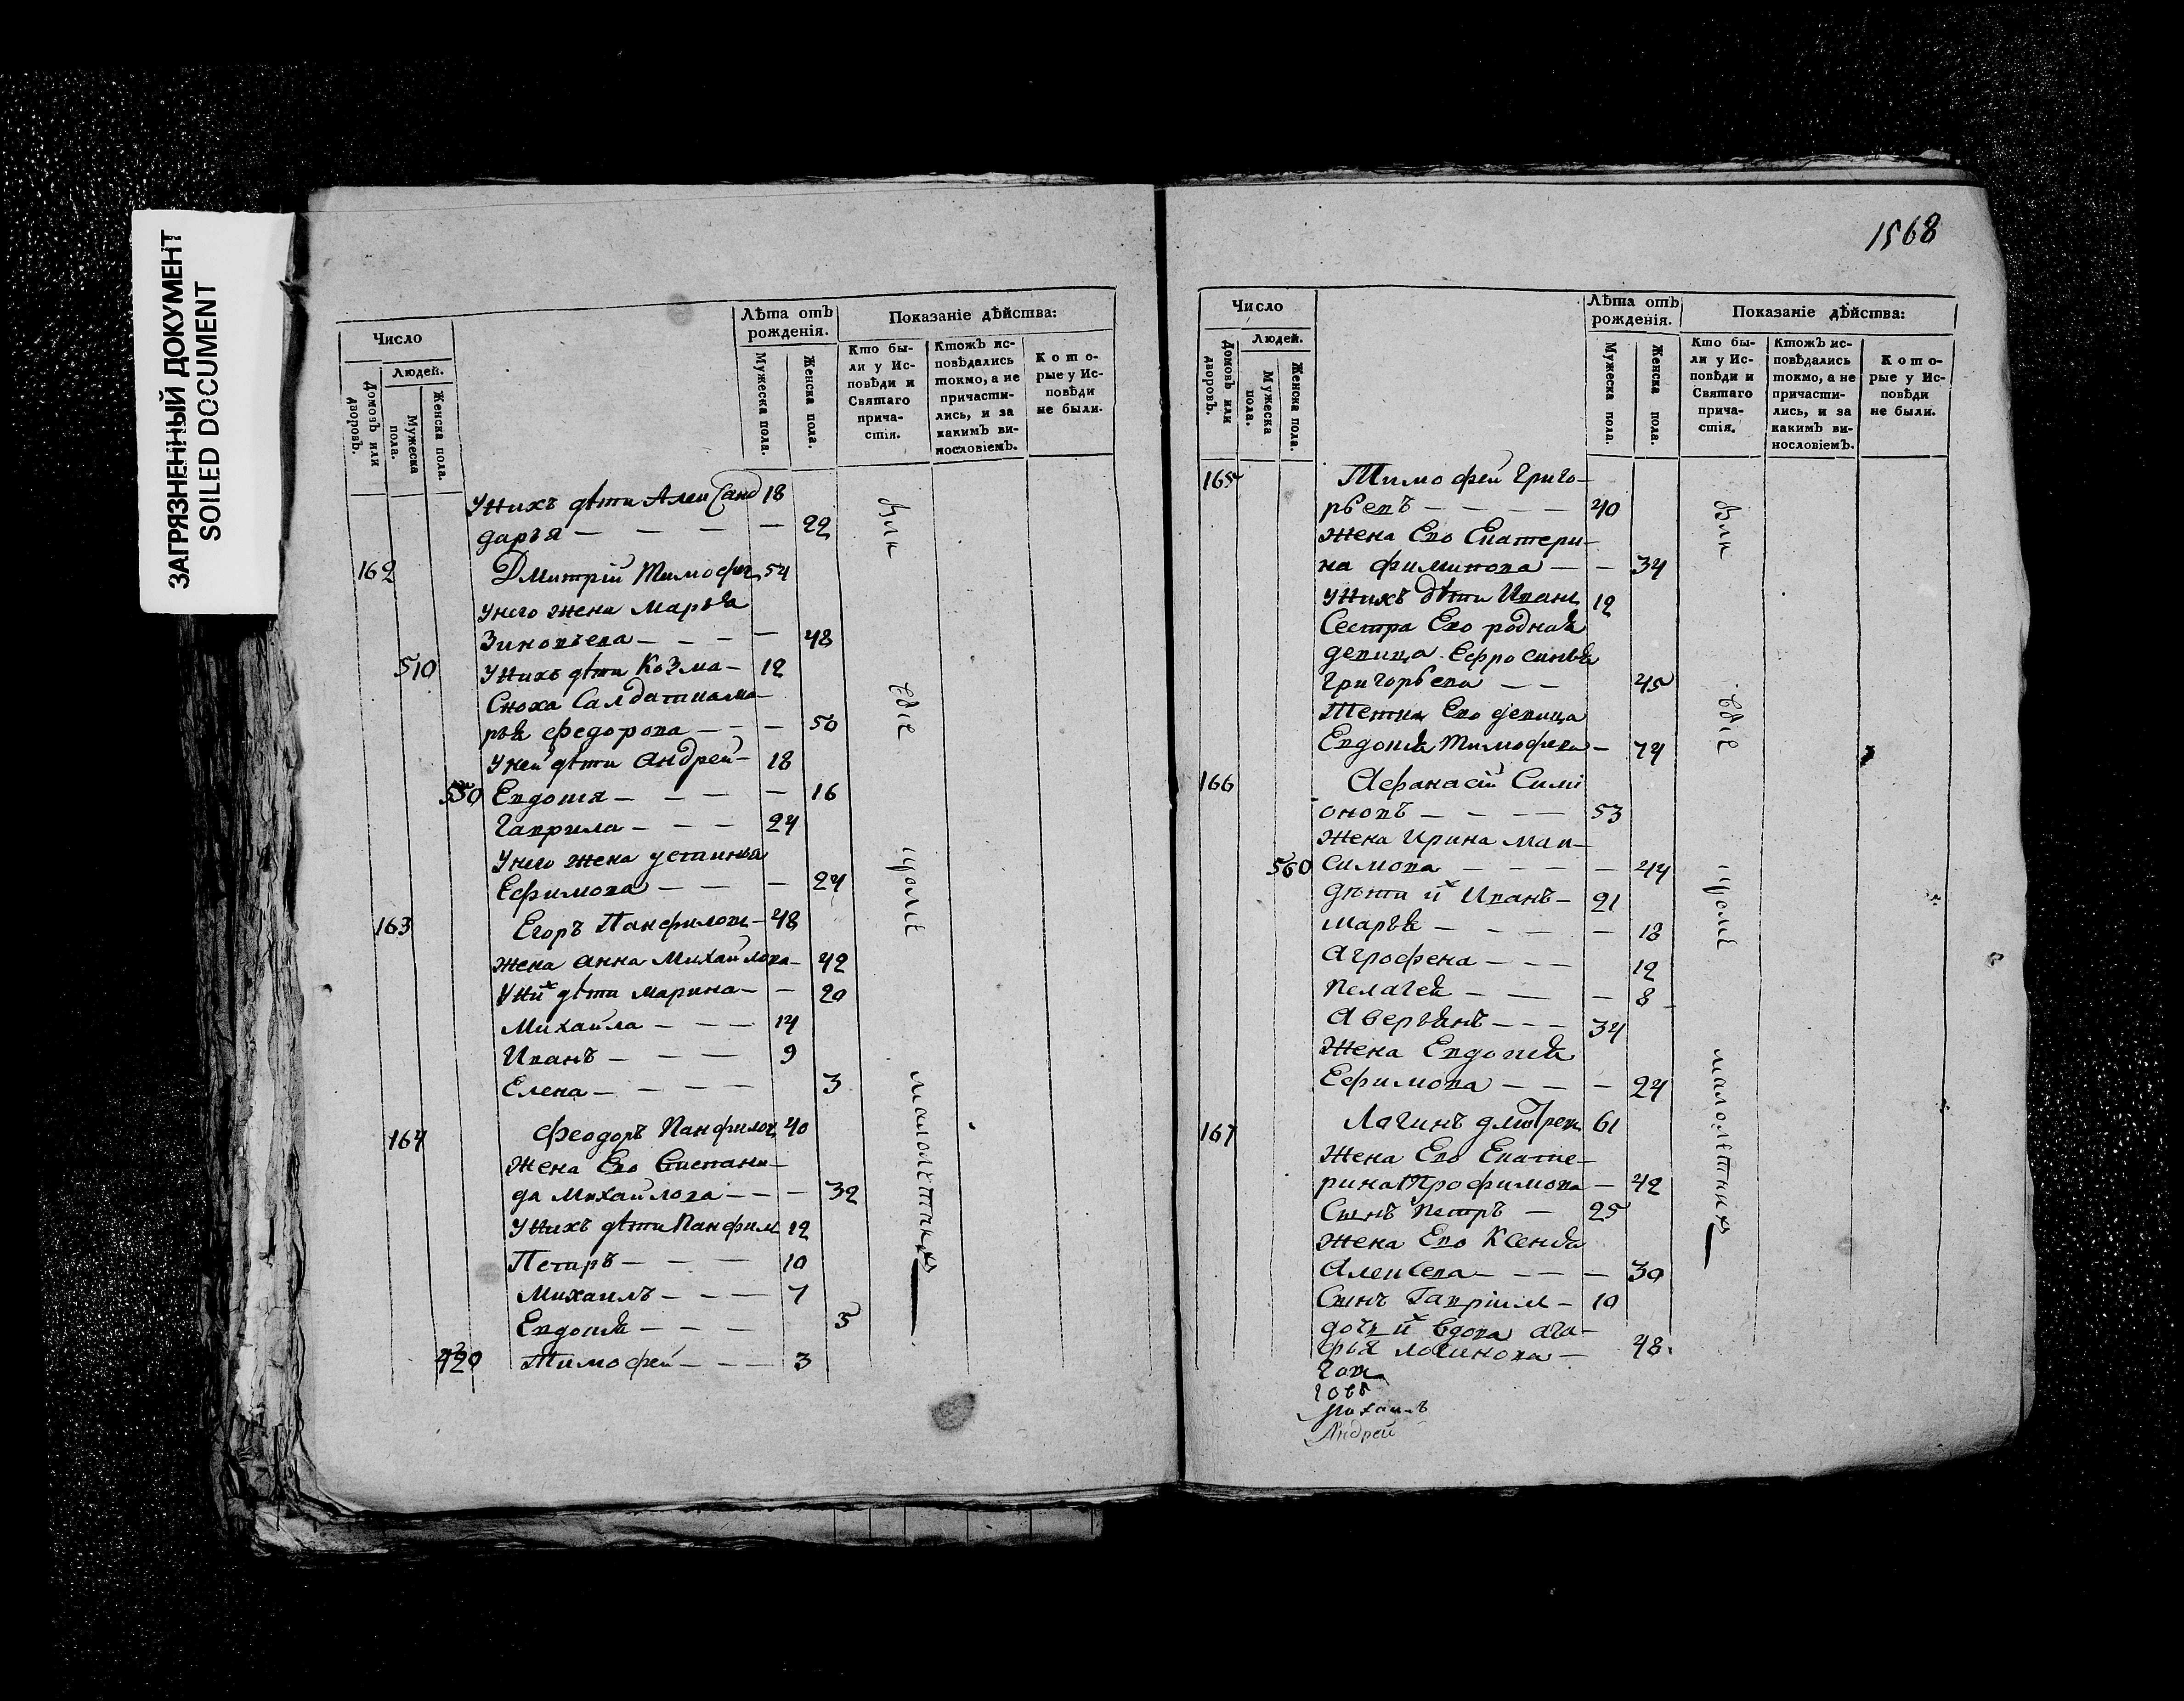 ЗАГРЯЗНЕННЫЙ ДОКУМЕНТ
SOILED DOCUMENT
Число
Людей.
Домовъ или дворовъ.
Мужеска пола.
Женска пола.
Лѣта отъ рожденія.
Мужеска пола.
Женска пола.
Показаніе дѣйства:
Кто бы-
ли у Ис-
повѣди и
Святаго
прича-
стія.
Ктожъ ис-
повѣдались
токмо, а не
причасти-
лись, и за
какимъ ви-
нословіемъ.
Кото-
рые у Ис-
повѣди
не были.
У нихъ дѣти Алеқсанд 18
дарья — — — — 22
162 Дмитрій Тимофеев 54
у него жена марья
Зиновьева — — — — 48
510 У нихъ дѣти Козма — 12
Сноха Салдатка ма-
рья Федорова — — — 50
У ней дѣти Андрей — 18
550 Евдотия — — — — 16
Гаврила — — — 24
У него жена устинья
Ефимова — — — 24
163 Егоръ Панфилов — 48
жена анна Михайлова — 42
У них дѣти марина — — 20
Михайла — — — 14
Иванъ — — — 9
Елена — — — — 3
164 Феодоръ Панфилов 40
Жена Его Степани-
да Михайлова — — — 32
У нихъ дѣти Панфил 12
Петръ — — — 10
Михаилъ — — — 7
Евдотья — — — 5
Тимофей — — — 3
Всѣ
кромѣ
малолѣтних
1568
Число
Людей.
Домовъ или дворовъ.
Мужеска пола.
Женска пола.
Лѣта отъ рожденія.
Мужеска пола.
Женска пола.
Показаніе дѣйства:
Кто бы-
ли у Ис-
повѣди и
Святаго
прича-
стія.
Ктожъ ис-
повѣдались
токмо, а не
причасти-
лись, и за
какимъ ви-
нословіемъ.
Кото-
рые у Ис-
повѣди
не были.
165 Тимофей Григо-
рьевъ — — — — 40
жена Его Екатери-
на филипова — — 34
У нихъ дѣти Иванъ 12
Сестра Его родная
девица Ефросинья
Григорьева — — 45
Тетка Его девица
Евдотья Тимофева — 74
166 Афанасій Симі
оновъ — — — — 53
Жена Ирина мак-
560 симова — — — — 44
дѣти их Иванъ — 21
марья — — — — — 18
Агрофена — — — 12
пелагея — — — 8
Аверьянъ — — — 34
Жена Евдотья
Ефимова — — — — 24
167 Логинъ дмитрев 61
Жена Его Екате-
рина Трофимова — 42
Сынъ петръ — 25
Жена Его Ксенья
Алексева — — — — 30
Сынъ Гавріил — 10
дочь их вдова ага-
фья логинова — 48
Михаилъ
Андрей
кромѣ
малолѣтних